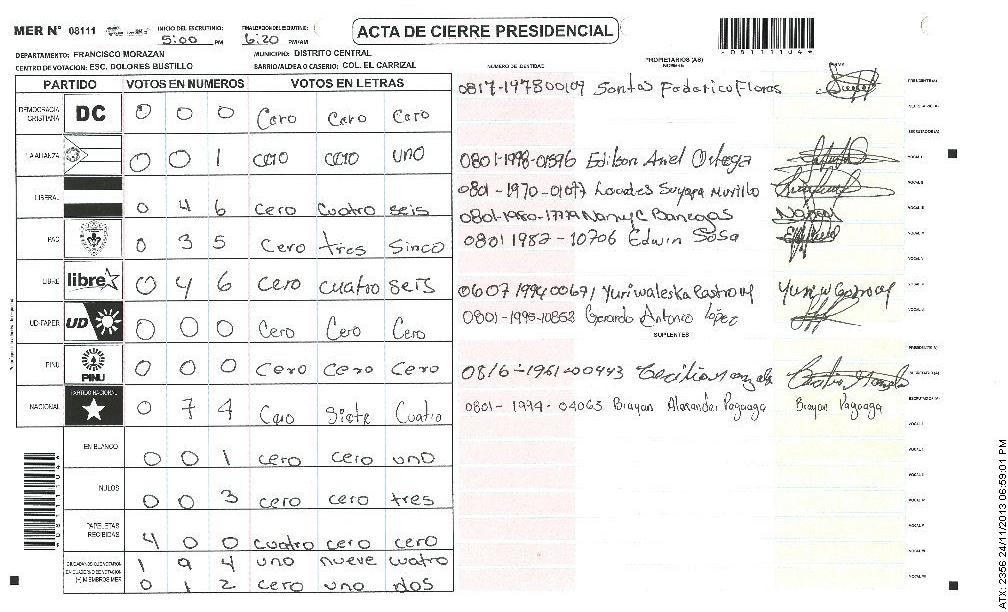 MER N° 08111
INICIO DEL ESCRUTINIO: 5:00 PM
FINALIZACION DEL ESCRUTINIO: 6:20 PM/AM
ACTA DE CIERRE PRESIDENCIAL
DEPARTAMENTO: FRANCISCO MORAZAN
MUNICIPIO: DISTRITO CENTRAL
CENTRO DE VOTACION: ESC. DOLORES BUSTILLO
BARRIO/ALDEA O CASERIO: COL. EL CARRIZAL
NUMERO DE IDENTIDAD
PROPIETARIOS (AS)
NOMBRE
FIRMA
PARTIDO VOTOS EN NUMEROS VOTOS EN LETRAS
DEMOCRACIA CRISTIANA DC 0 0 0 Cero Cero Cero
LA ALIANZA 0 0 1 cero cero uno
LIBERAL 0 4 6 cero cuatro seis
PAC 0 3 5 Cero tres Sinco
LIBRE libre 0 4 6 cero cuatro seis
UD-FAPER UD 0 0 0 Cero Cero Cero
PINU PINU 0 0 0 Cero Cero Cero
NACIONAL PARTIDO NACIONAL 0 7 4 Cero Siete Cuatro
EN BLANCO 0 0 1 cero cero uno
NULOS 0 0 3 cero cero tres
PAPELETAS RECIBIDAS 4 0 0 cuatro cero cero
1 9 4 uno nueve cuatro
(+) MIEMBROS MER 0 1 2 cero uno dos
0817-197800109 Santos Federico Flores
0801-1998-01596 Edilson Ariel Ortega
0801-1970-01077 Lourdes Suyapa Murillo
0801-1980-17779 Nancy C Banegas
0801 1982-10706 Edwin Sosa
0607 1994 00671 Yuri Waleska
0801-1995-10852 Gerardo Antonio López
SUPLENTES
0816-1961-00443 Cecilia Gonzales
0801-1994-04063 Brayan Alexander Paguaga Brayan Paguaga
ATX: 2356 24/11/2013 06:59:01 PM